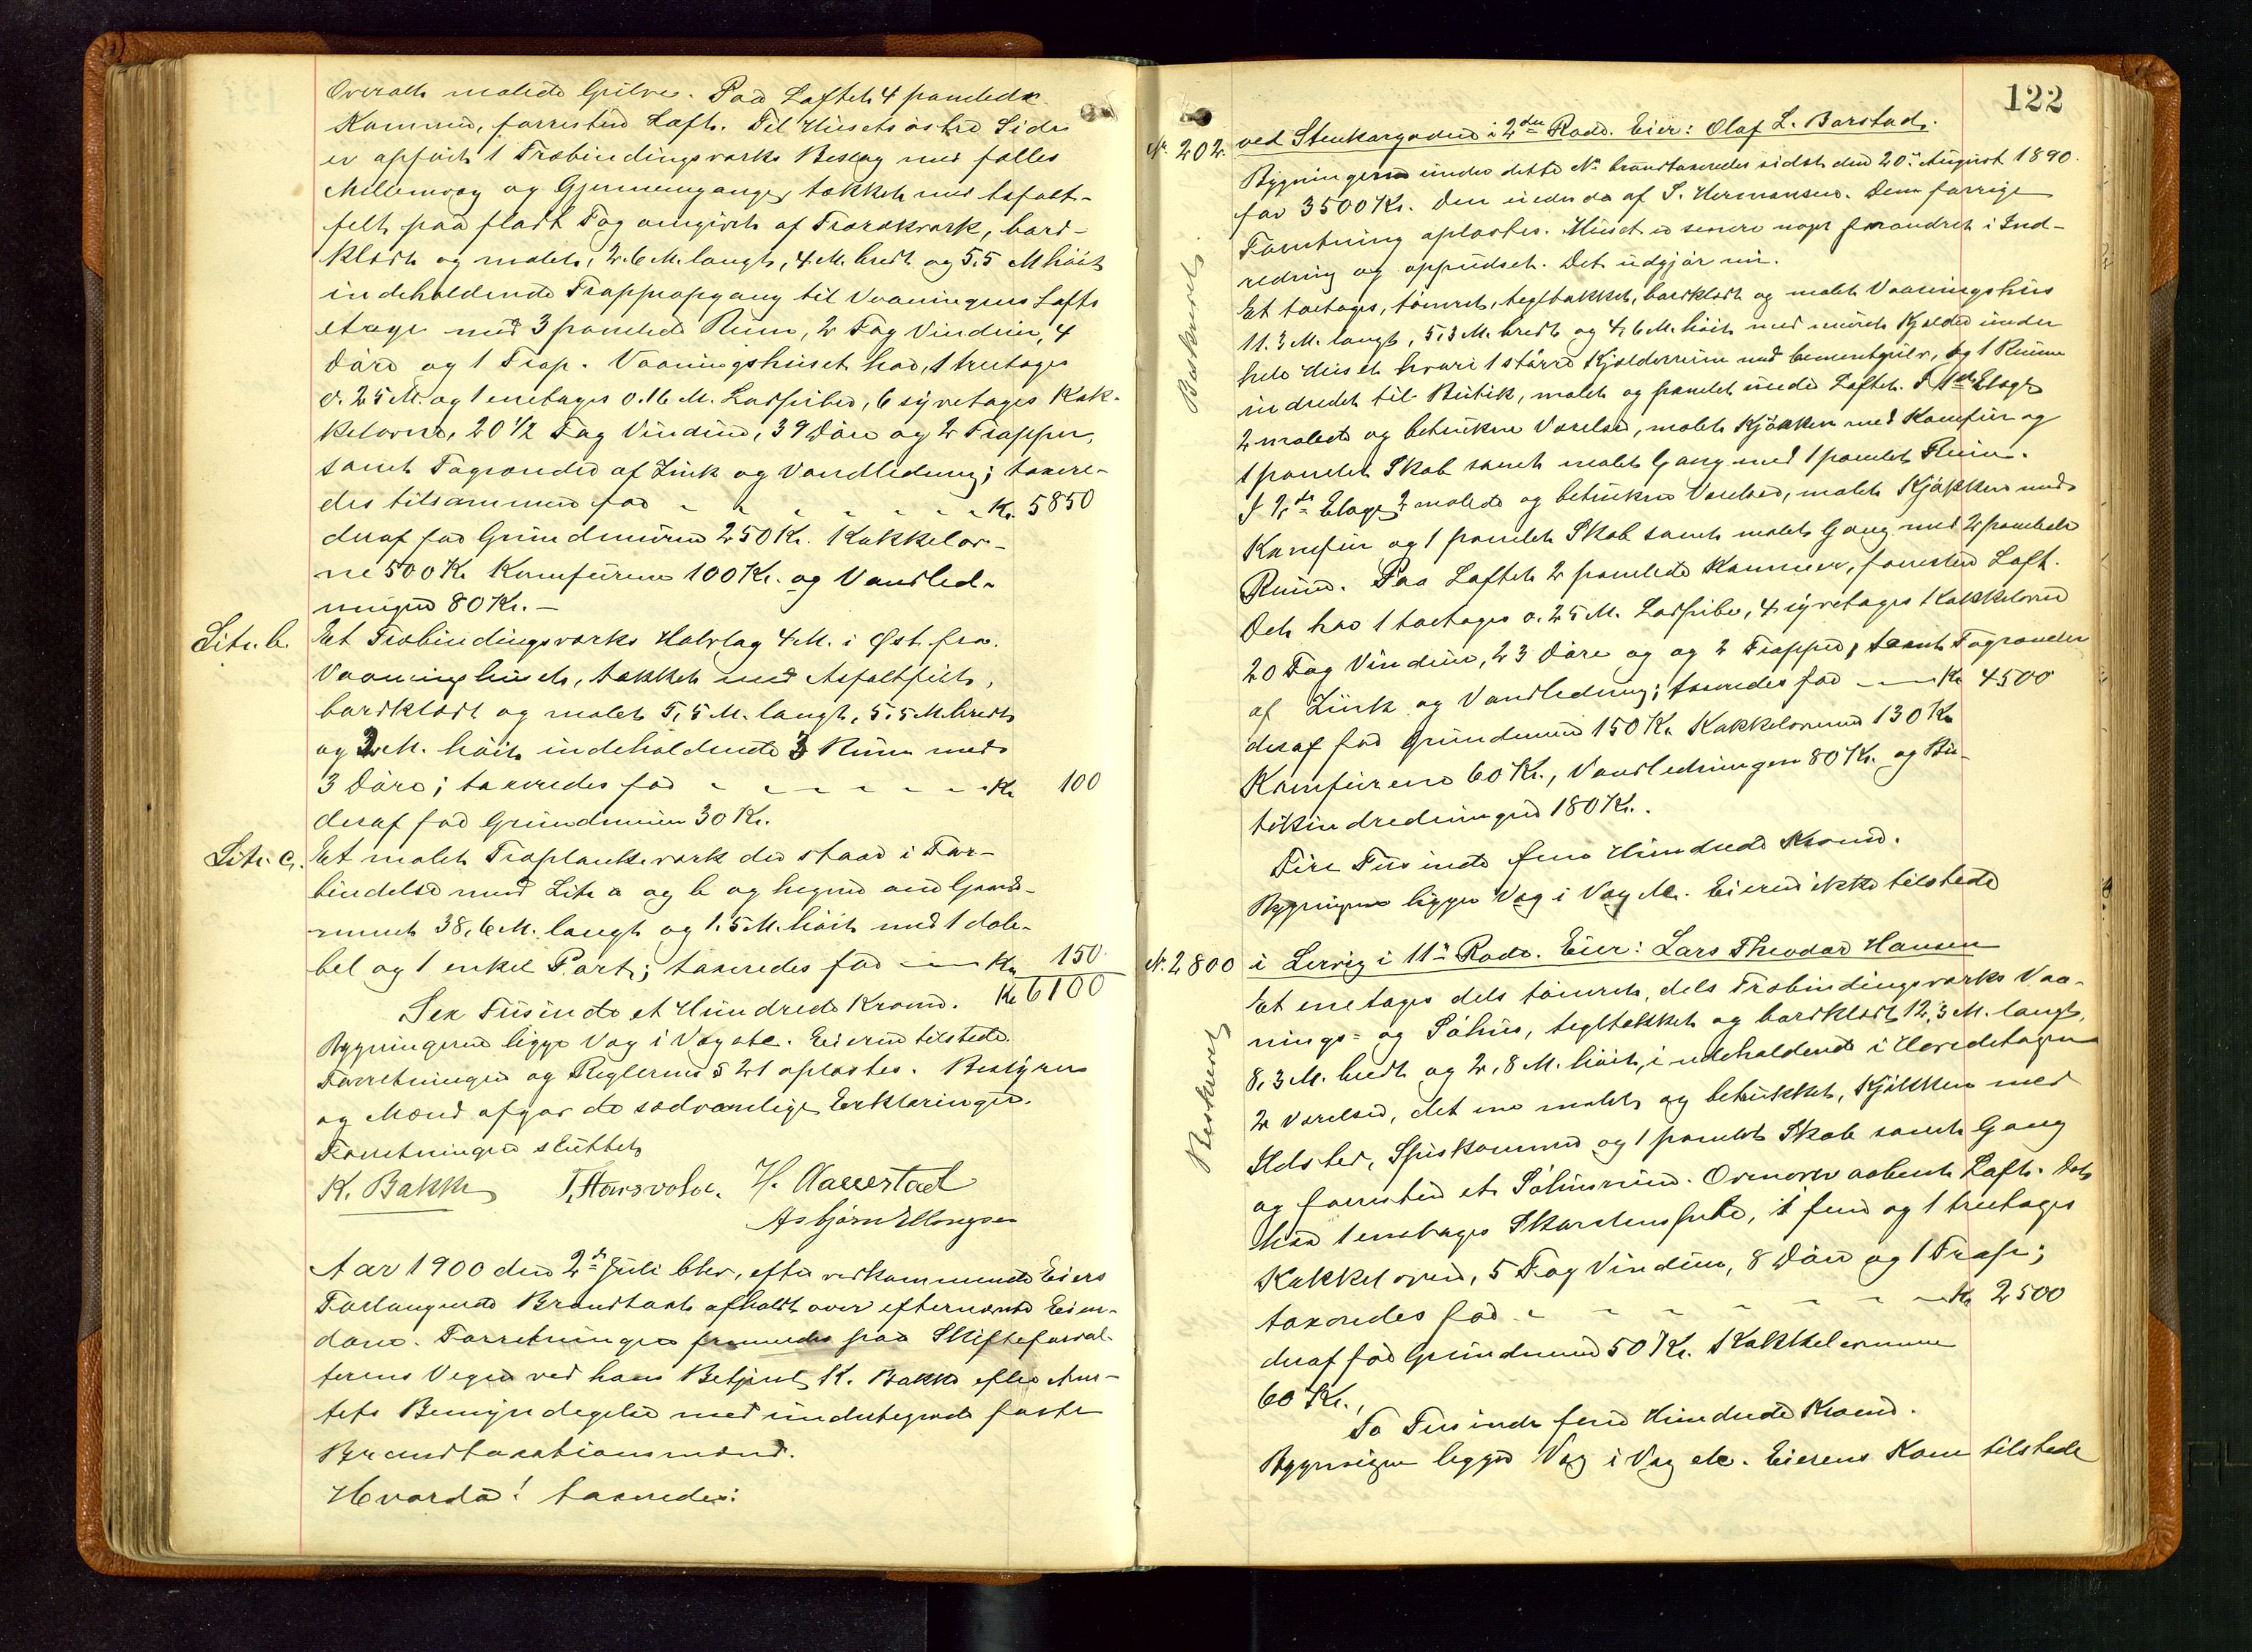 Overalt malede Gulve. Paa Loftet 4 panelede
Kammere, forresten Loft. Til Husets østre Side
er opført 1 Træbindingsværks Beslag med fælles
Mellemvæg og Gjennemgange, tækket med Asfalt-
felt paa fladt Tag omgivet af Trærækværk, bord-
klædt og malet, 2.6 M. langt, 4 M. bredt og 5.5 M høit
indeholdende Trappeopgang til Vaaningens Lofts
etage med 3 panelede Rum, 2 Fag Vinduer, 4
Døre og 1 Trap. Vaaningshuset har, 1 treetages
0.25 M. og 1 enetages 0.16 M. Ladpiber, 6 syvetages Kak-
kelovne, 20 1/2 Fag Vinduer, 39 Døre og 2 Trapper,
samt Tagrender af Zink og Vandledning; taxere-
des tilsammen for - - - - - - - Kr. 5850
deraf for Grundmuren 250 Kr. Kakkelov-
ne 500 Kr Komfurene 100 Kr. og Vandled-
ningen 80 Kr. —
Litr. b. Et Træbindingsværks Halvtag 4 M. i Øst fra
Vaaningshuset, tækket med Asfaltfilt,
bordklædt og malet 5,5 M. langt, 5.5 M. bredt
og 2 M. høit indeholdende 3 Rum med
3 Døre; taxeredes for - - - - - - Kr 100
deraf for Grundmuren 30 Kr.
Litr. c. Et malet Træplankeværk der staar i For-
bindelse med Litr a og b og hegner om Gaards-
rummet 38,6 M. langt og 1.5 M. høit med 1 dob-
bel og 1 enkel Port; taxeredes for — Kr 150.
Sex Tusinde et Hundrede Kroner. Kr 6100
Bygningerne ligge Væg i Væg etc. Eieren tilstede.
Forretningen og Reglernes § 21 oplæstes. Bestyrer
og Mænd afgav de sædvanlige Erklæringer.
Forretningen sluttet
K. Bakke H. Aawestad
Asbjørn Ellingsen
Aar 1900 den 2den Juli blev, efter vedkommende Eiers
Forlangende Brandtaxt afholdt over efternævnte Eien-
domme. Forretningen fremmedes paa Skifteforval-
terens Vegne ved hans Betjent K. Bakke efter Am-
tets Bemyndigelse med undertegnede faste
Brandtaxationsmænd.
Hvorda! taxeredes:
122
No. 202. ved Stenkargaden i 2den Rode. Eier: Olaf L. Barstad.
Beskrevet.
Bygningerne under dette No brandtaxeredes sidst den 20de August 1890.
for 3500 Kr. Den eiedes da af S. Hermansen. Den forrige
Forretning oplæstes. Huset er senere noget forandret i Ind-
redning og oppudset. Det udgjør nu.
Et toetages, tømret, tegltækket, bordklædt og malet Vaaningshus
11.3 M. langt, 5,3 M. bredt og 4,6 M. høit med muret Kjelder under
hele Huset hvori 1 større Kjelderrum med Cementgulv, og 1 Rum
indredet til Butik, malet og panelet under Loftet. I 1ste Etage
2 malede og betrukne Værelser, malet Kjøkken med Komfur og
1 panelet Skab samt malet Gang med 1 panelet Rum.
I 2den Etage 2 malede og betrukne Værelser, malet Kjøkken med
Komfur og 1 panelet Skab samt malet Gang med 2 panelede
Rum. Paa Loftet 2 panelede Kammer, forresten Loft.
Det har 1 toetages 0.25 M. Ladpibe, 4 syvetages Kakkelovne
20 Fag Vinduer, 23 Døre og og 2 Trapper, samt Tagrender
af Zink og Vandledning; taxeredes for — Kr 4500
deraf for Grundmuren 150 Kr. Kakkelovnene 130 Kr
Komfurene 60 Kr., Vandledningen 80 Kr. og Bu-
tikindredningen 180 Kr.
Fire Tusinde fem Hundrede Kroner.
Bygningen ligger Væg i Væg etc. Eieren ikke tilstede
No. 2800 i Lervig i 11te Rode. Eier: Lars Theodor Hansen
Beskrevet
Et enetages dels tømret, dels Træbindingsværks Vaa-
nings- og Søhus, tegltækket og bordklædt 12,3 M. langt,
8,3 M. bredt og 2,8 M. høit, indeholdende i Hovedetagen
2 Værelser, det ene malet og betrukket, Kjøkken med
Ildsted, Spiskammer og 1 panelet Skab samt Gang
og forresten et Søhusrum. Ovenover aabent Loft. Det
har 1 enetages Skorstenspibe, 1 fem og 1 treetages
Kakkelovn, 5 Fag Vinduer, 8 Døre og 1 Trap;
taxeredes for - - - - - - - Kr 2500
deraf for Grundmuren 50 Kr. Kakkelovnene
60 Kr.,
To Tusinde fem Hundrede Kroner.
Bygningen ligger Væg i Væg etc. Eierens Kone tilstede